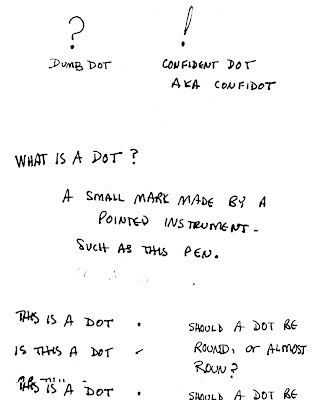 ?
!
DUMB DOT
CONFIDENT DOT
AKA CONFIDOT
WHAT IS A DOT?
A SMALL MARK MADE BY A
POINTED INSTRUMENT -
SUCH AS THIS PEN.
THIS IS A DOT .
IS THIS A DOT
SHOULD A DOT BE
ROUND, OR ALMOST
ROUN?
THIS IS A DOT .
SHOULD A DOT BE